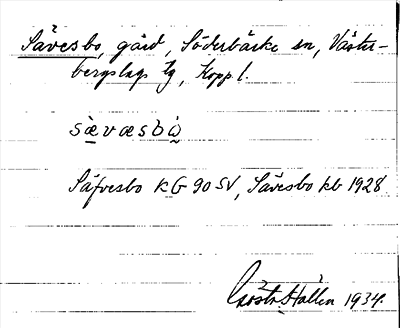 Sävesbo, gård, Söderbärke sn, Väster-
bergslags tg, Kopp l.
sèvæsbò
Säfvesbo KG 90 SV, Sävesbo kb 1928
Gösta Hallén 1934.